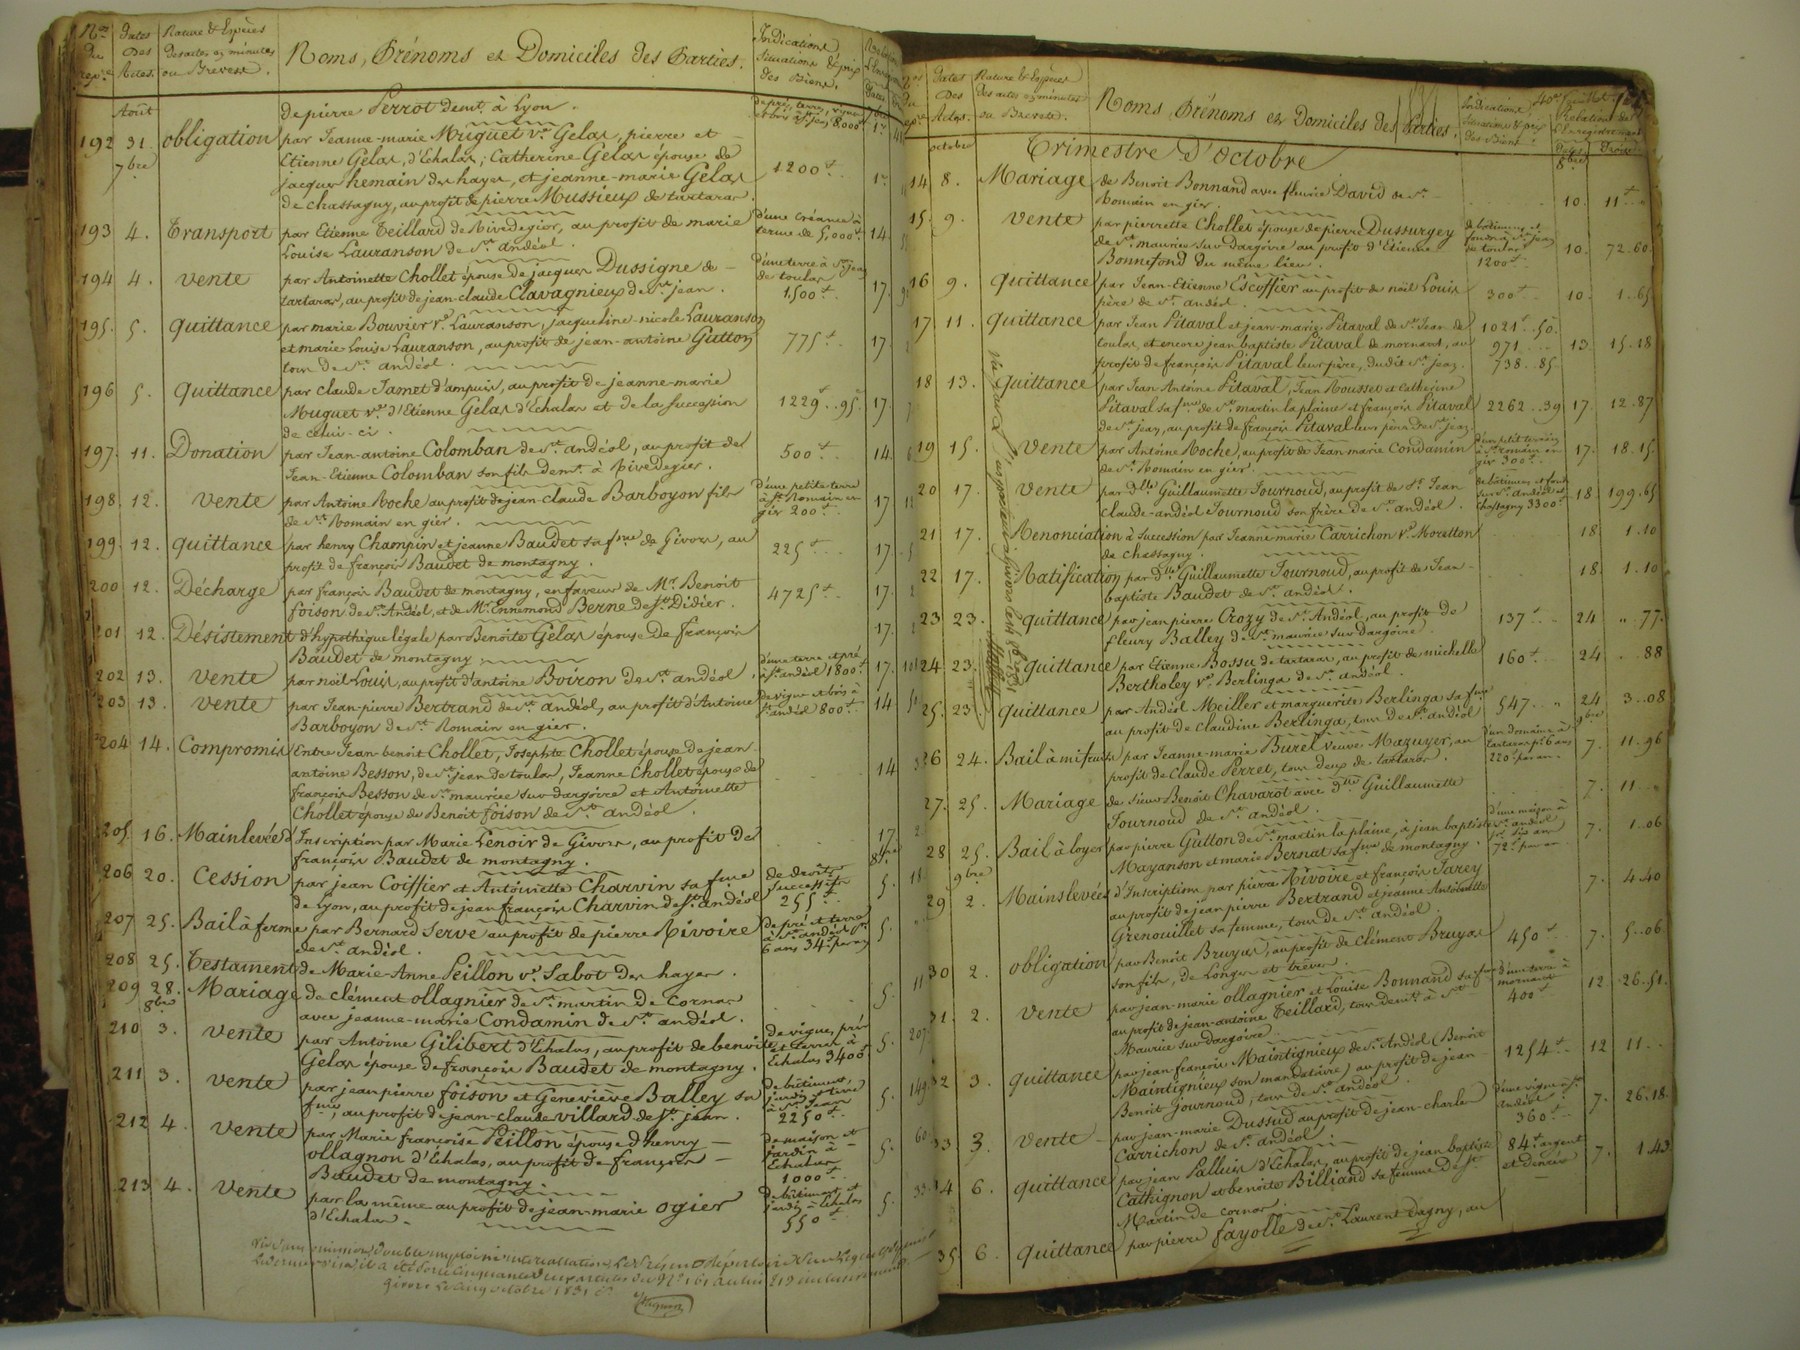 Nos du repre
Dates Des Actes.
Nature & Espèces des actes en minutes ou Brevets.
Noms, Prénoms et Domiciles des Parties.
Indications Situations & prix des Biens.
Août
de pierre Perrot demt. à Lyon.
192 31. obligation par Jeanne-marie Muguet ve. Gelas, pierre et
7bre Etienne Gelas, d'Echalas; Catherine Gelas épouse de 1200tt
jacques hemain des hayes, et jeanne-marie Gelas
de chassagny, au profit de pierre Mussieux de tartaras.
193 4. Transport par Etienne Teillard de Rivedegier, au profit de marie d'une Créance à
Louise Lauranson de St. andéol. terme de 5,000tt 14.
194 4. vente par Antoinette Chollet épouse De jacques Dussigne de d'une terre à St. jean
tartaras, au profit de jean-claude Clavagnieux de St. jean. de toulas 1,500tt 17.
195. 5. quittance par marie Bouvier ve. Lauranson, jacqueline-nicole Lauranson
et marie Louise Lauranson, au profit de jean-antoine Gutton 775tt 17.
tous de St. andéol.
196 5. quittance par claude Jamet d'ampuis, au profit de jeanne-marie
Muguet ve. d'Etienne Gelas d'Echalas et de la succession 1229tt 95. 17.
de celui-ci.
197. 11. Donation par Jean-antoine Colomban de St. andéol, au profit de 500tt 14.
Jean-Etienne Colomban son fils demt. à Rivedegier.
198. 12. vente par Antoine Roche au profit de jean-claude Barboyon fils d'une petite terre
de St. Romain en gier. à St. Romain en gier 200tt 17
199. 12. quittance par henry Champin et jeanne Baudet sa fme de Givors, au 225tt 17
profit de françois Baudet de montagny.
200 12. Décharge par françois Baudet de montagny, en faveur de Mr. Benoit 4725tt 17.
foison de St. Andéol, et de Mr. Ennemond Berne de St. Didier.
201 12. Désistement d'hypothèque légale par Benoite Gelas épouse De françois 17.
Baudet de montagny
202 13. vente par noël Louis, au profit d'antoine Boiron de St. andéol. d'une terre et pré à St. andéol 1800tt 17.
203 13. vente par Jean-pierre Bertrand de St. andéol, au profit d'Antoine de vigne et bois à
Barboyon de St. Romain en-gier. St. andéol 800tt 14
204 14. Compromis Entre Jean-benoit Chollet, Josephte Chollet épouse de jean-
antoine Besson, de St. jean de toulas, Jeanne Chollet épouse de 14
françois Besson de St. maurice sur dargoire et Antoinette
Chollet épouse de Benoit foison de St. andéol.
205 16. Mainlevée d'Inscription par Marie Lenoir de Givors, au profit de 17
françois Baudet de montagny. 8bre
206 20. Cession par jean Coiffier et Antoinette Charvin sa fme de droits successifs
de Lyon, au profit de jean françois Charvin de St. andéol 255tt 5.
207 25. Bail à ferme par Bernard Serve au profit de pierre Rivoire de pré et terre
de St. andéol. à St. andéol pr. 6 ans 34tt par an 5.
208 25. Testament de Marie-Anne Peillon ve. Sabot des hayes.
209 28. Mariage de clément ollagnier de St. martin de Cornas 5.
8bre avec jeanne-marie Condamin de St. andéol.
210 3. vente par Antoine Gilibert d'Echalas, au profit de benoite de vigne, pré et terre à
Gelas épouse de françois Baudet de montagny. Echalas 3400tt 5.
211 3. vente par jean pierre foison et Geneviève Balley sa de bâtiment, jardin et terre
fme, au profit de jean-claude villard de St. jean. à St. Jean 2250tt 5.
212 4. vente par Marie françoise Peillon épouse d'henry de maison et jardin à
ollagnon d'Echalas, au profit de françois Echalas 1000tt 5.
Baudet de montagny.
213 4. vente par la même au profit de jean-marie ogier de bâtiment et jardin à Echalas
d'Echalas. 550tt 5.
Dates Des Actes.
Nature & Espèces des actes en minutes ou Brevets.
Noms, Prénoms et Domiciles des Parties.
Indications Situations & prix des Biens.
Relations de l'Enregistrement
octobre
Trimestre d'Octobre
8bre
14 8. Mariage de Benoit Bonnand avec fleurie David de St. 10. 11tt
Romain en gier.
15. 9. vente par pierrette Chollet épouse de pierre Dussurgey de bâtiment et
de St. maurice sur dargoire au profit d'Etienne fonds à St. jean de toulas 10. 72.60.
Bonnefond du même lieu. 1200tt
16 9. quittance par Jean-Etienne Escoffier au profit de noël Louis 300tt 10. 1..65
père de St. andéol.
17 11. quittance par Jean Pitaval et jean-marie Pitaval de St. Jean de 1021tt..50.
toulas, et encore jean baptiste Pitaval de mornant, au 971 13. 15.18
profit de françois Pitaval leur père, dudit St. jean. 738..85
18 13. quittance par Jean Antoine Pitaval, Jean Rousset et Catherine
Pitaval sa fme de St. martin la plaine et françois Pitaval 2262..39 17. 12.87
de St. jean, au profit de françois Pitaval leur père de St. jean
19 15. vente par Antoine Roche, au profit de Jean marie Condamin d'un petit terrain
de St. Romain en gier. à St. Romain en gier 300tt 17. 18.15.
20 17. vente par dlle Guillaumette Journoud, au profit de Sr. Jean de bâtiment et fonds
claude-andéol Journoud son frère de St. andéol. sur St. andéol et chassagny 3300tt 18 199.65
21 17. Renonciation à Succession par Jeanne marie Carrichon ve. Moretton 18. 1.10
de chassagny.
22 17. Ratification par dlle Guillaumette Journoud, au profit de Jean- 18. 1.10
baptiste Baudet de St. andéol.
23 23. quittance par jean pierre Crozy de St. Andéol, au profit de 137tt 24 " 77.
fleury Balley de St. maurice sur dargoire
24 23. quittance par Etienne Bossu de tartaras, au profit de michelle 160tt 24 88
Bertholey ve. Berlinga de St. andéol.
25. 23. quittance par Andéol Meiller et marguerite Berlinga sa fme 547 " 24 3..08
au profit de Claudine Berlinga, tous de St. andéol 9bre
26 24. Bail à mi fruits par Jeanne-marie Burel veuve Mazuyer, au d'un domaine à tartaras pr. 6 ans
profit de Claude Perret, tous deux de tartaras. 220tt par an 7. 11.96
27. 25. Mariage de Sieur Benoit Chavarot avec dlle Guillaumette 7. 11
Journoud de St. andéol.
28 25. Bail à loyer par pierre Gutton de St. martin la plaine, à jean baptiste d'une maison à St. andéol
Mayanson et marie Bernat sa fme de montagny. pr. six ans 72tt par an 7. 1..06
9bre
29 2. Mainslevées d'Inscriptions par pierre Rivoire et françois Jarey 7. 4.40
au profit de jean pierre Bertrand et jeanne Antoinette
Grenouillet sa femme, tous de St. andéol.
30 2. obligation par Benoit Bruyas, au profit de Clément Bruyas 450tt 7. 5..06
son fils, de Longes et trèves.
31. 2. vente par jean-marie ollagnier et Louise Bonnand sa fme d'une terre à mornant
au profit de jean-antoine Teillard, tous demt. à St. 400tt 12. 26.51.
Maurice sur dargoire
32 3. quittance par jean-françois Maintignieux de St. Andéol (Benoit
Maintignieux son mandataire) au profit de jean- 1254tt 12 11
Benoit Journoud, tous de St. andéol.
33 3. vente par jean-marie Dussud au profit de jean-charles d'une vigne à St. andéol
Carrichon de St. andéol. 360tt 7. 26.18
34 6. quittance par jean Palluis d'Echalas, au profit de jean baptiste 84tt argent
Cathignon et benoite Billiand sa femme de St. et denrées 7. 1.43.
Martin de cornas.
35. 6. quittance par pierre fayolle de St. Laurent Dagny, au